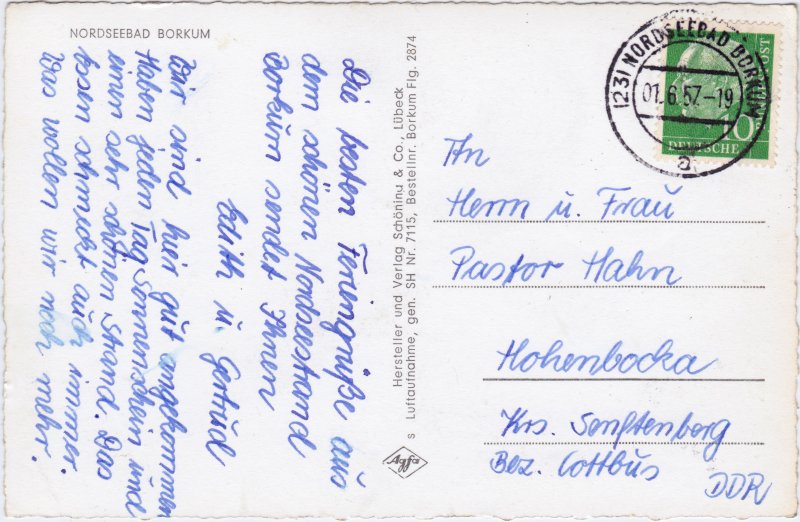 NORDSEEBAD BORKUM
Die besten Feriengrüße aus
dem schönen Nordseestrand
Borkum sendet Ihnen
Edith u. Gertrud
Wir sind hier gut angekommen
Haben jeden Tag Sonnenschein und
einen sehr schönen Strand. Das
Essen schmeckt auch immer.
Was wollen wir noch mehr.
Hersteller und Verlag Schöning & Co., Lübeck
S Luftaufnahme, gen. SH Nr. 7115, Bestellnr. Borkum Flg. 2874
Agfa
(23) NORDSEEBAD BORKUM
01.6.57.-19
a
POST
10
DEUTSCHE
An
Herrn u. Frau
Pastor Hahn
Hohenbocka
Krs. Senftenberg
Bez. Cottbus
DDR